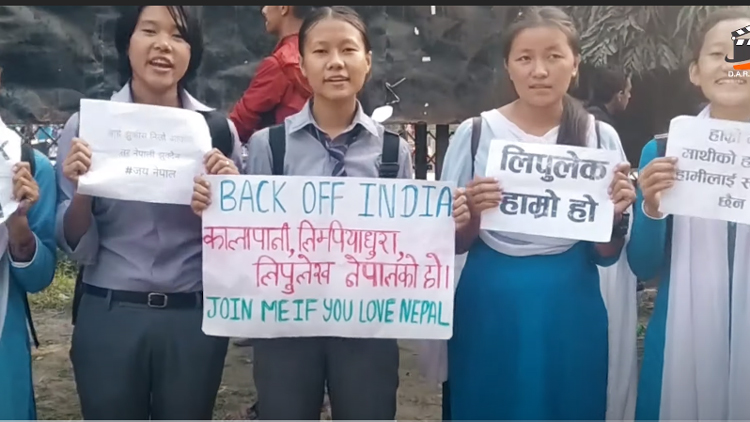 #जय नेपाल
BACK OFF INDIA
कालापानी, लिम्पियाधुरा,
लिपुलेख नेपालको हो।
JOIN ME IF YOU LOVE NEPAL
लिपुलेक
हाम्रो हो
हाम्रो
साथीको
हामीलाई
छैन